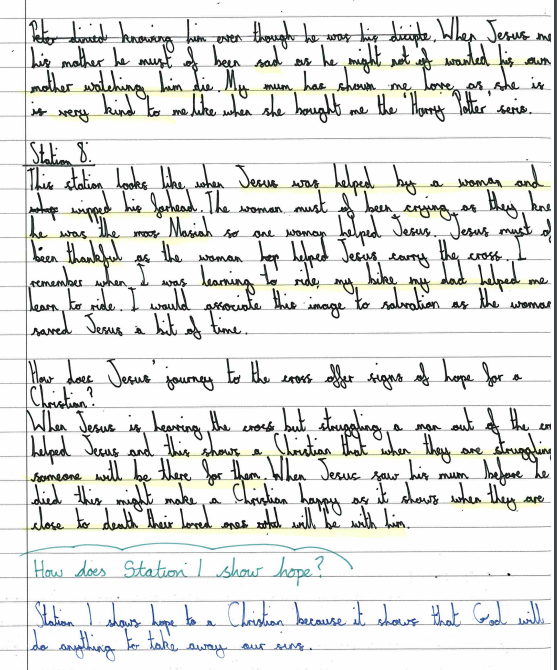 Peter dinied knowing him even though he was his diciple. When Jesus me
his mother he must of been sad as he might not of wanted his own
mother watching him die. My mum has shown me love as she is
is very kind to me like when she bought me the 'Harry Potter' seris.
Station 8.
This station looks like when Jesus was helped by a woman and
wipped his forhead. The woman must of been crying as they kne
he was the Masiah so one woman helped Jesus. Jesus must o
been thankful as the woman helped Jesus carry the cross. I
remember when I was learning to ride my bike my dad helped me
learn to ride. I would associate this image to salvation as the woman
saved Jesus a bit of time.
How does Jesus' journey to the cross offer signs of hope for a
Christian?
When Jesus is bearing the cross but struggling a man out of the cr
helped Jesus and this shows a Christian that when they are struggling
someone will be there for them. When Jesus saw his mum before he
died this might make a Christian happy as it shows when they are
close to death their loved ones will be with him.
How does Station 1 show hope?
Station 1 shows hope to a Christian because it shows that God will
do anything to take away our sins.